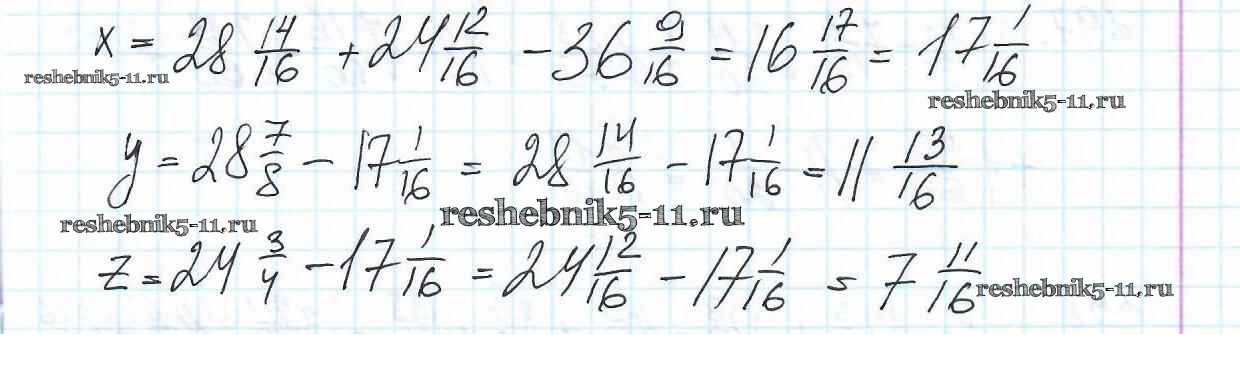 x = 28 14/16 + 24 12/16 - 36 9/16 = 16 17/16 = 17 1/16
reshebnik5-11.ru
reshebnik5-11.ru
y = 28 7/8 - 17 1/16 = 28 14/16 - 17 1/16 = 11 13/16
reshebnik5-11.ru
reshebnik5-11.ru
z = 24 3/4 - 17 1/16 = 24 12/16 - 17 1/16 = 7 11/16
reshebnik5-11.ru